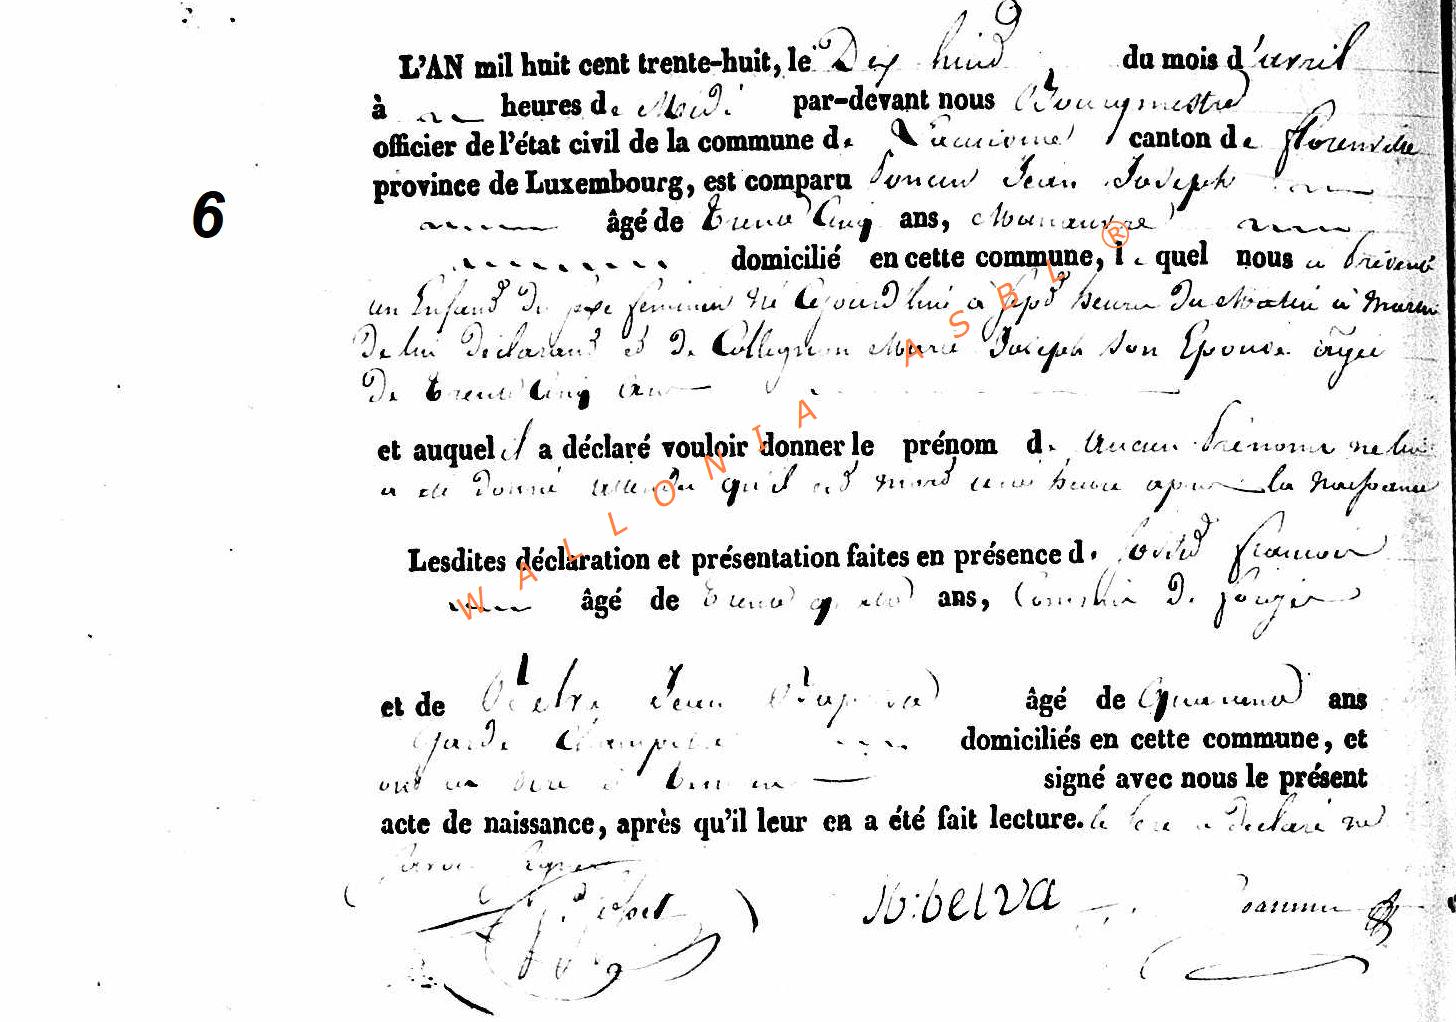 L'AN mil huit cent trente-huit, le Dix huit du mois d'avril
à heures de Midi par-devant nous Bourgmestre
officier de l'état civil de la commune de canton de florenville
province de Luxembourg, est comparu Poncin Jean Joseph
6
âgé de trente Cinq ans, Manœuvre
domicilié en cette commune, le quel nous a présenté
un Enfant du sexe feminin né Cejourd'hui à sept heures du Matin
De lui déclarant et de Collignon Marie Joseph son Epouse âgée
De trente Cinq ans
et auquel il a déclaré vouloir donner le prénom de aucun Prénom ne lui
a été donné attendu qu'il est mort une heure après la naissance
Lesdites déclaration et présentation faites en présence de françois
âgé de trente quatre ans,
et de Jean Baptiste âgé de Quarante ans
garde Champetre domiciliés en cette commune, et
ont signé avec nous le présent
acte de naissance, après qu'il leur en a été fait lecture. le Pere a declaré ne
Savoir Signer
WALLONIA ASBL ®